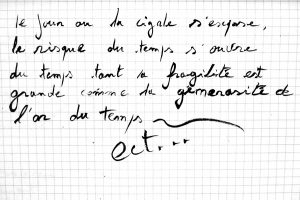 le jour ou la cigale s'expose,
la risque du temps s'ouvre
du temps tant sa fragilité est
grande comme la génerosité de
l'or du temps
ect...